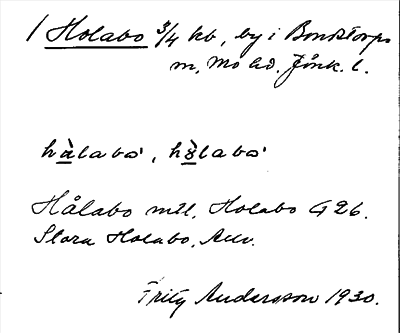 1 Holabo 3/4 kb, by i Bondstorps
m, Mo hd. Jönk. l.
hàlabo', hòlabo'
Hålabo mtl. Holabo G 26.
Stora Holabo, Auv.
Fritz Andersson 1930.